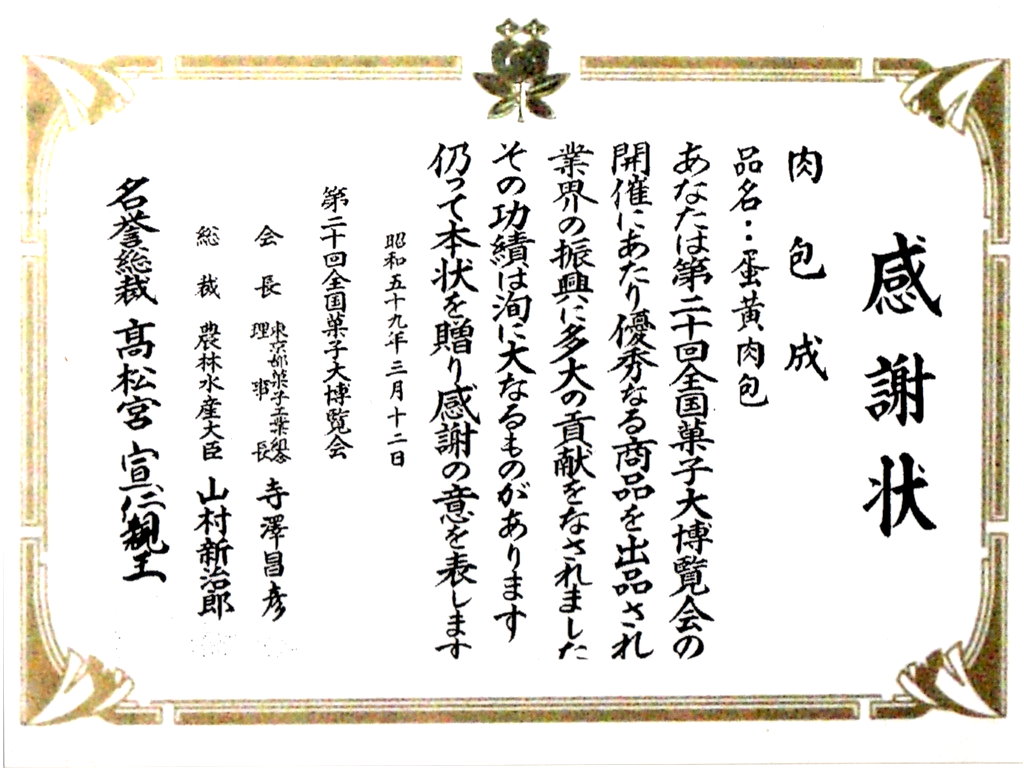 感謝状
肉包成
品名：蛋黄肉包
あなたは第二十回全国菓子大博覧会の
開催にあたり優秀なる商品を出品され
業界の振興に多大の貢献をなされました
その功績は洵に大なるものがあります
仍って本状を贈り感謝の意を表します
昭和五十九年三月十二日
第二十回全国菓子大博覧会
会長 東京都菓子工業組合理事長 寺澤昌彦
総裁 農林水産大臣 山村新治郎
名誉総裁 髙松宮宣仁親王